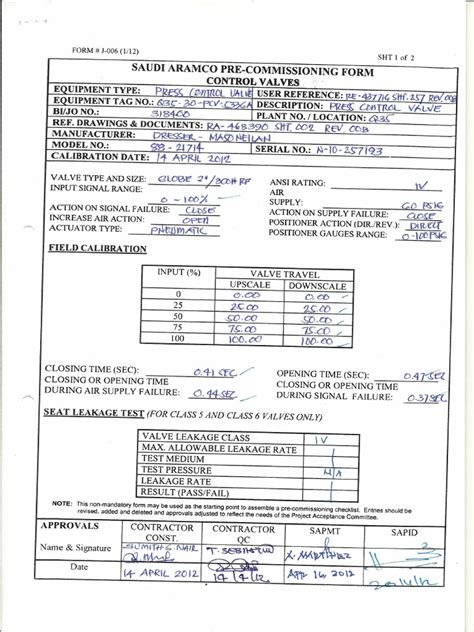 FORM # J-006 (1/12)
SHT 1 of 2
SAUDI ARAMCO PRE-COMMISSIONING FORM
CONTROL VALVES
EQUIPMENT TYPE: PRESS CONTROL VALVE USER REFERENCE: RE-437716 SHT. 257 REV. 00B
EQUIPMENT TAG NO.: Q35-30-PCV- DESCRIPTION: PRESS CONTROL VALVE
BI/JO NO.: 318400 PLANT NO. / LOCATION: Q35
REF. DRAWINGS & DOCUMENTS: RA-468390 SHT. 002 REV. 00B
MANUFACTURER: DRESSER - MASONEILAN
MODEL NO.: 88-21714 SERIAL NO.: N-10-257193
CALIBRATION DATE: 14 APRIL 2012
VALVE TYPE AND SIZE: GLOBE 2"/300# RF ANSI RATING: IV
INPUT SIGNAL RANGE: 0 - 100% AIR SUPPLY: 60 PSIG
ACTION ON SIGNAL FAILURE: CLOSE ACTION ON SUPPLY FAILURE: CLOSE
INCREASE AIR ACTION: OPEN POSITIONER ACTION (DIR./REV.): DIRECT
ACTUATOR TYPE: PNEUMATIC POSITIONER GAUGES RANGE: 0-100 PSIG
FIELD CALIBRATION
INPUT (%) VALVE TRAVEL
UPSCALE DOWNSCALE
0 0.00 0.00
25 25.00 25.00
50 50.00 50.00
75 75.00 75.00
100 100.00 100.00
CLOSING TIME (SEC): 0.41 SEC OPENING TIME (SEC): 0.47 SEC
CLOSING OR OPENING TIME DURING AIR SUPPLY FAILURE: 0.44 SEC CLOSING OR OPENING TIME DURING SIGNAL FAILURE: 0.37 SEC
SEAT LEAKAGE TEST (FOR CLASS 5 AND CLASS 6 VALVES ONLY)
VALVE LEAKAGE CLASS IV
MAX. ALLOWABLE LEAKAGE RATE
TEST MEDIUM
TEST PRESSURE N/A
LEAKAGE RATE
RESULT (PASS/FAIL)
NOTE: This non-mandatory form may be used as the starting point to assemble a pre-commissioning checklist. Entries should be
revised, added and deleted and approvals adjusted to reflect the needs of the Project Acceptance Committee.
APPROVALS CONTRACTOR CONST. CONTRACTOR QC SAPMT SAPID
Name & Signature SUMITH S. NAIR
Date 14 APRIL 2012 14/4/12 APR 16, 2012